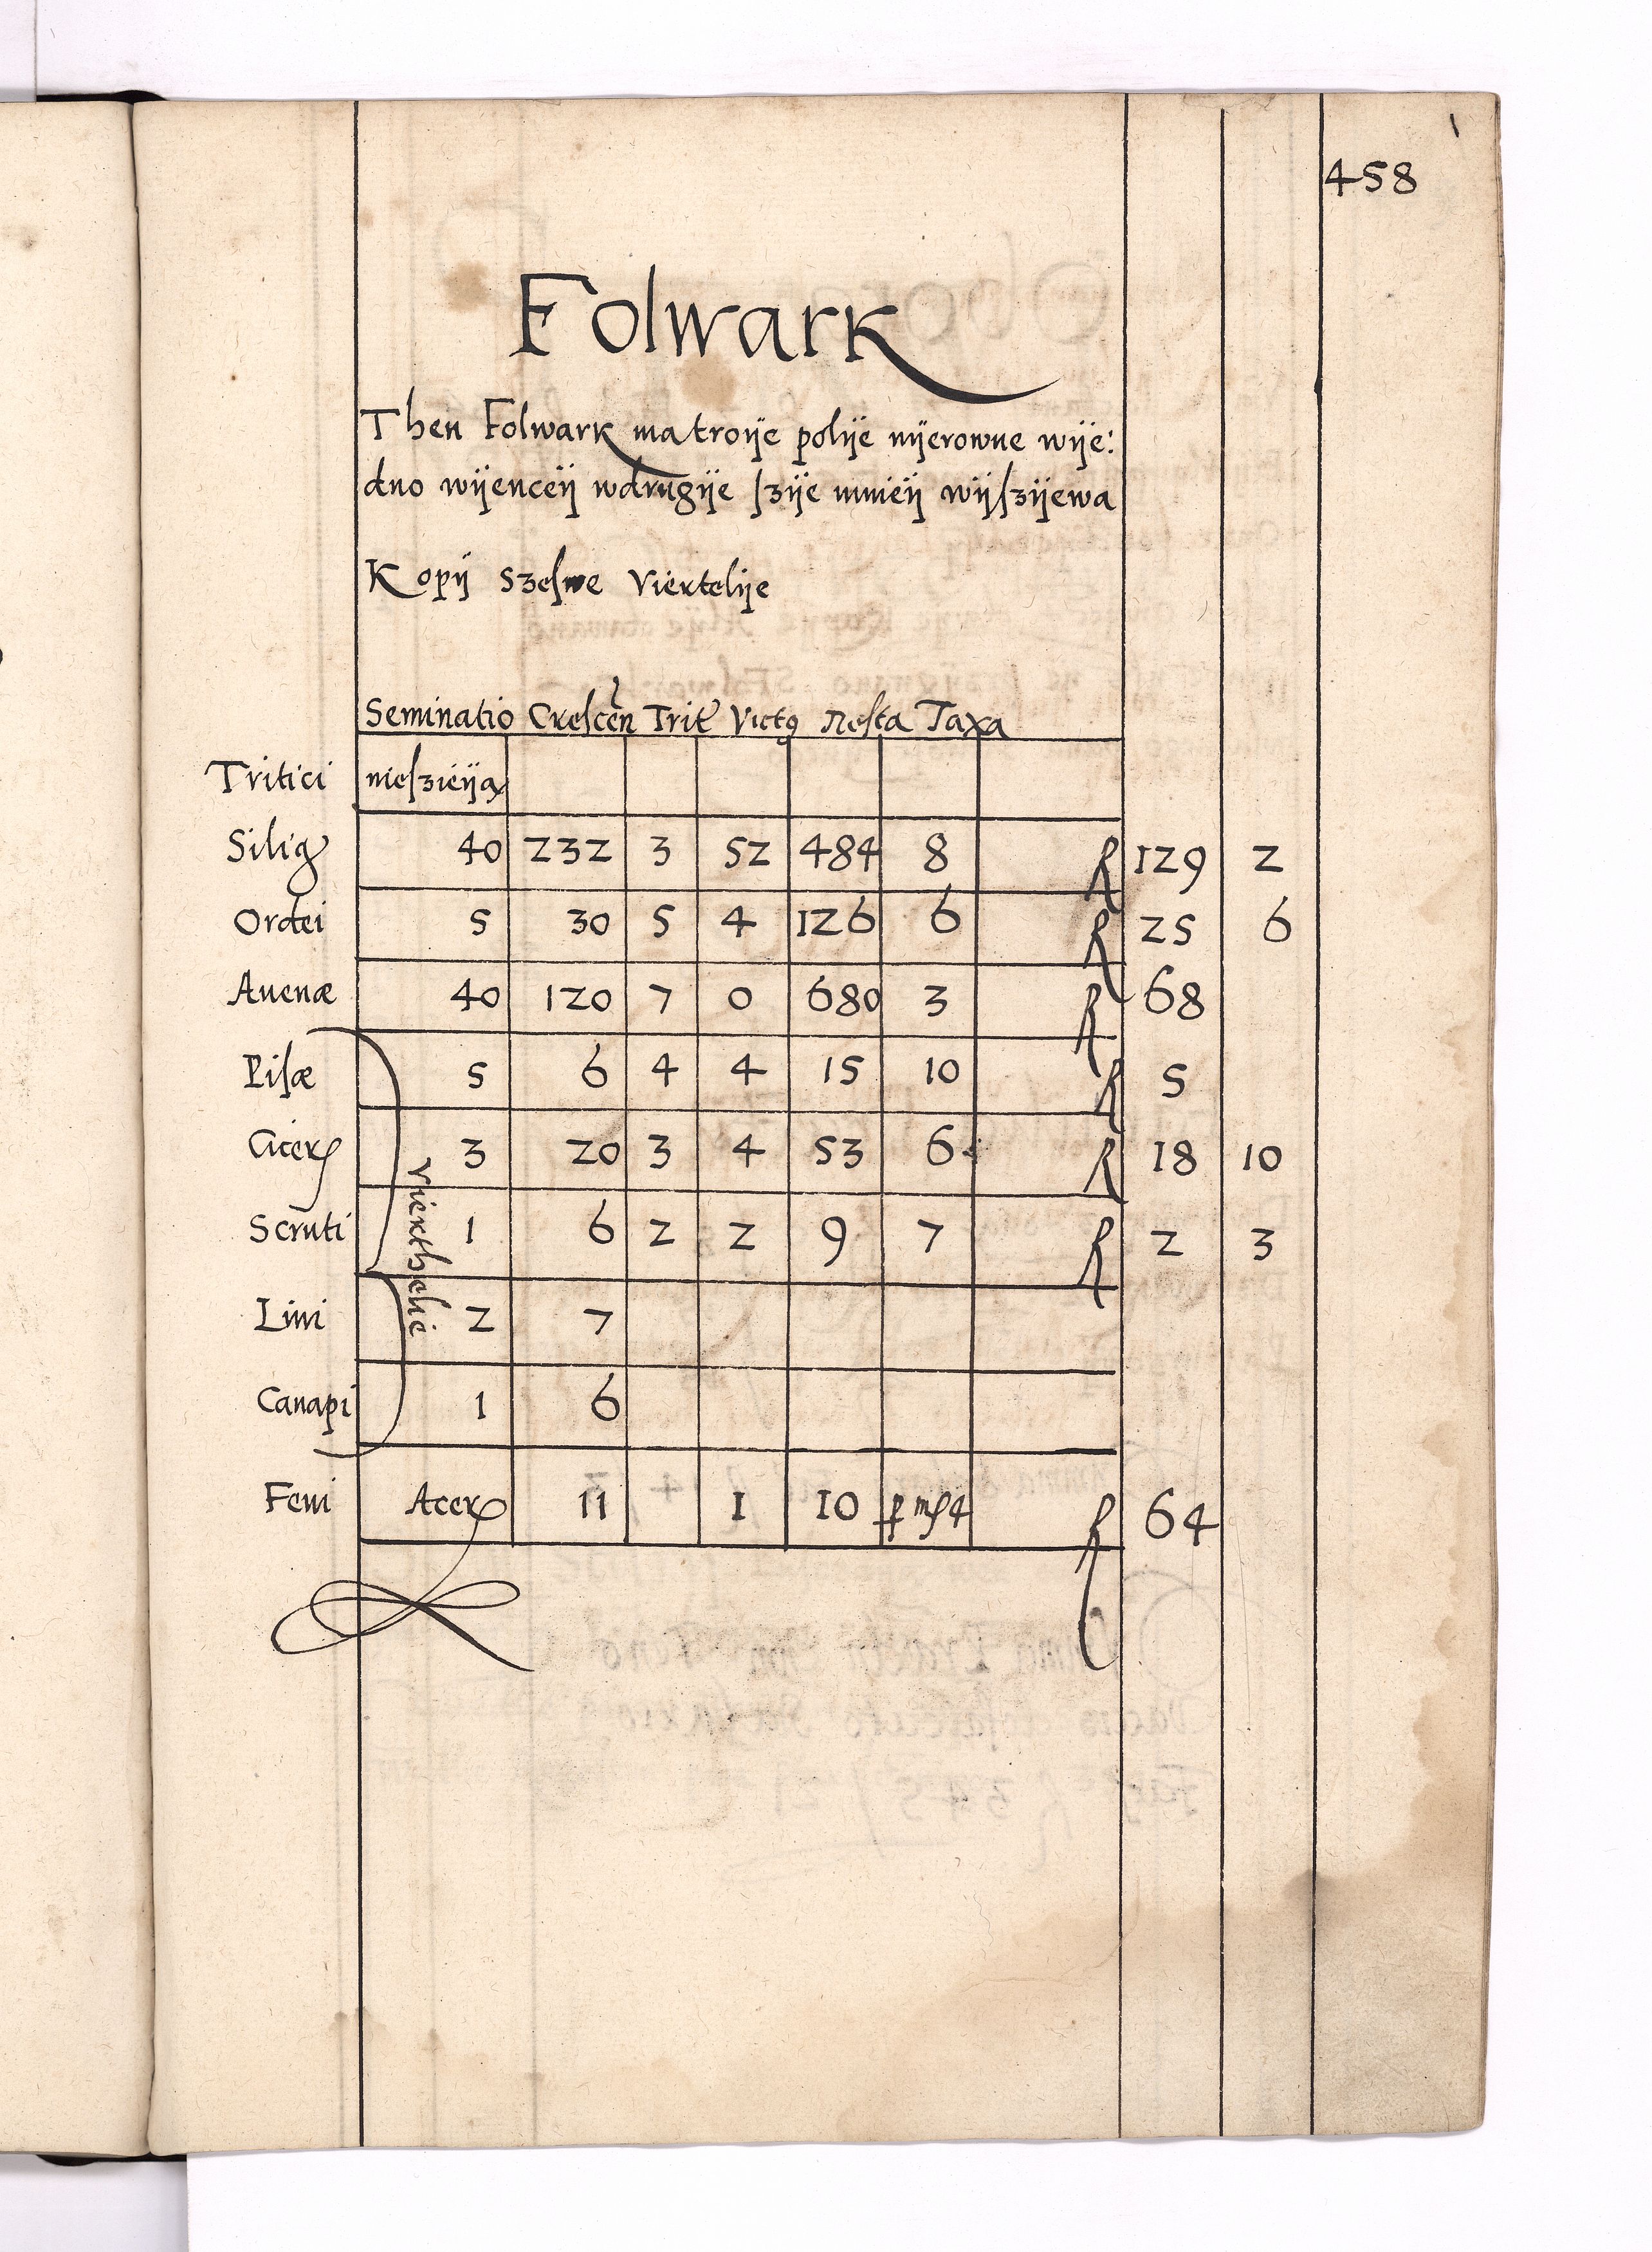 458
Folwark
Then Folwark ma troije polije nijerowne wije:
dno wijenceij wdrugije ſzije mnieij wijſzijewa
Kopij szeſne Viertelije
Seminatio Creſcen Trit Victꝯ Reſta Taxa
Tritici nieſzieija
Silig 40 232 3 52 484 8 ƒ 129 2
Ordei 5 30 5 4 126 6 ƒ 25 6
Auenæ 40 120 7 0 680 3 ƒ 68
Piſæ 5 6 4 4 15 10 ƒ 5
Cicerꝭ 3 20 3 4 53 6 ƒ 18 10
Scruti 1 6 2 2 9 7 ƒ 2 3
Vierthelie
Lini 2 7
Canapi 1 6
Feni Acerꝭ 11 1 10 ꝑ mꝭ 4 ƒ 64